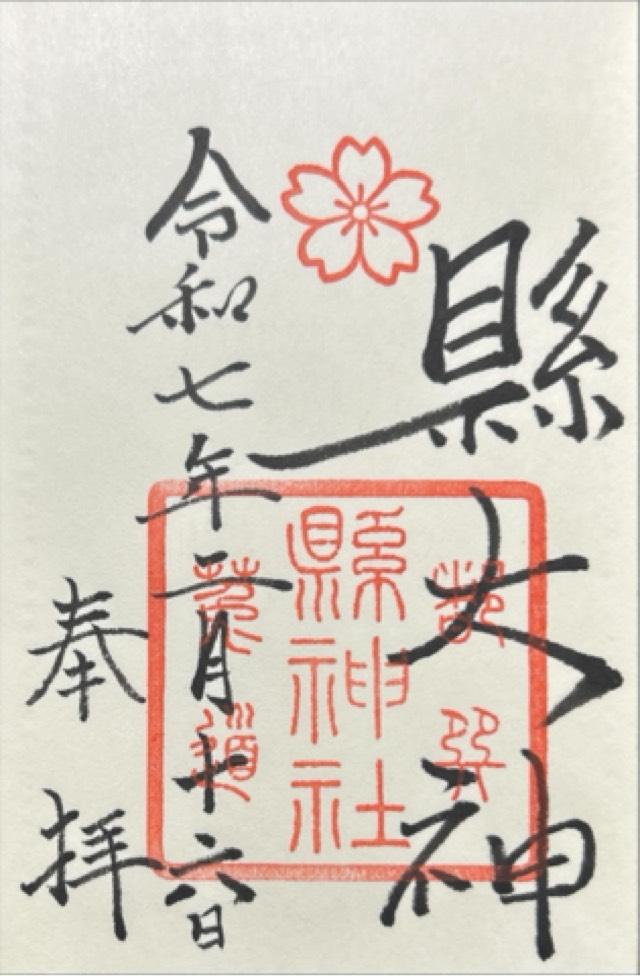 縣大神
都巽
縣神社
菟道
令和七年二月十六日
奉拝